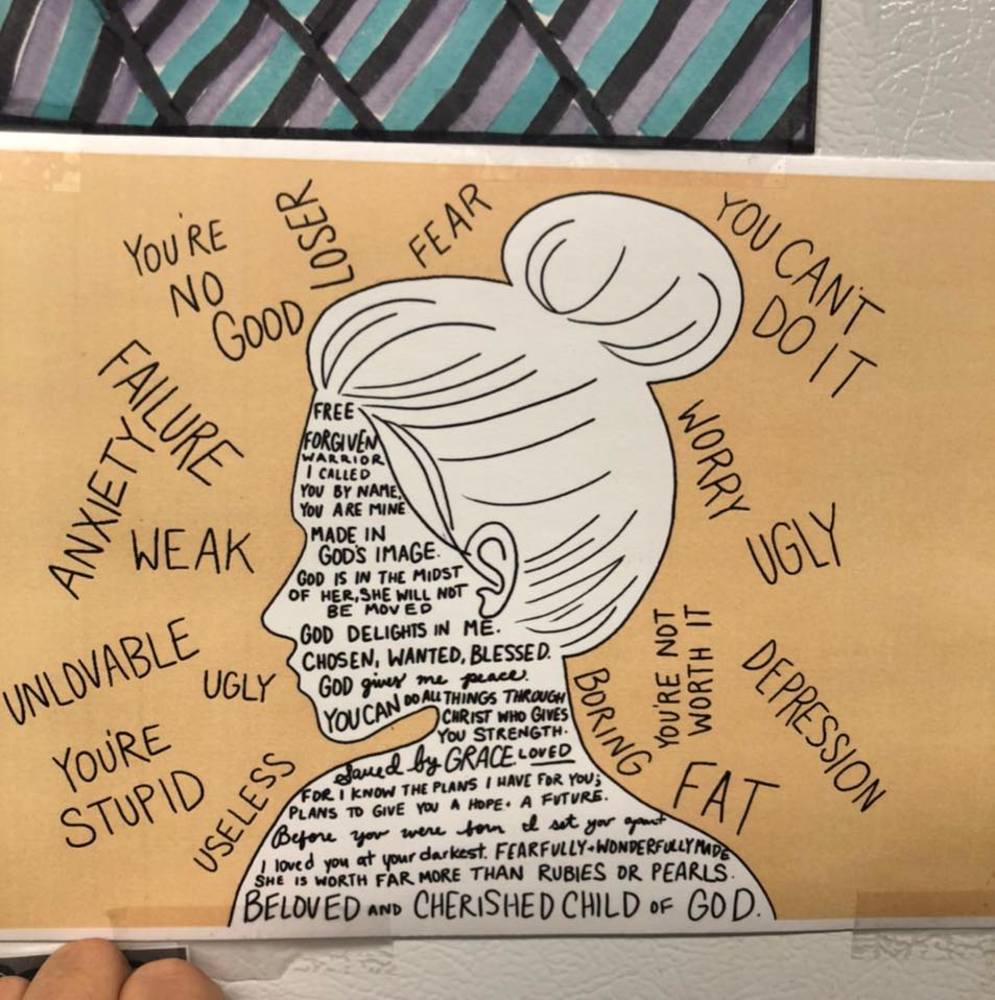 YOU'RE
NO
GOOD
LOSER
FEAR
YOU CAN'T
DO IT
FAILURE
ANXIETY
WEAK
UNLOVABLE
UGLY
YOU'RE
STUPID
USELESS
FREE
FORGIVEN
WARRIOR
I CALLED
YOU BY NAME,
YOU ARE MINE
MADE IN
GOD'S IMAGE.
GOD IS IN THE MIDST
OF HER, SHE WILL NOT
BE MOVED
GOD DELIGHTS IN ME.
CHOSEN, WANTED, BLESSED.
GOD gives me peace.
YOU CAN DO ALL THINGS THROUGH
CHRIST WHO GIVES
YOU STRENGTH.
Saved by GRACE. LOVED
FOR I KNOW THE PLANS I HAVE FOR YOU;
PLANS TO GIVE YOU A HOPE + A FUTURE.
Before you were born I set you apart
I loved you at your darkest. FEARFULLY + WONDERFULLY MADE
SHE IS WORTH FAR MORE THAN RUBIES OR PEARLS.
BELOVED AND CHERISHED CHILD OF GOD.
WORRY
UGLY
YOU'RE NOT
WORTH IT
BORING
DEPRESSION
FAT